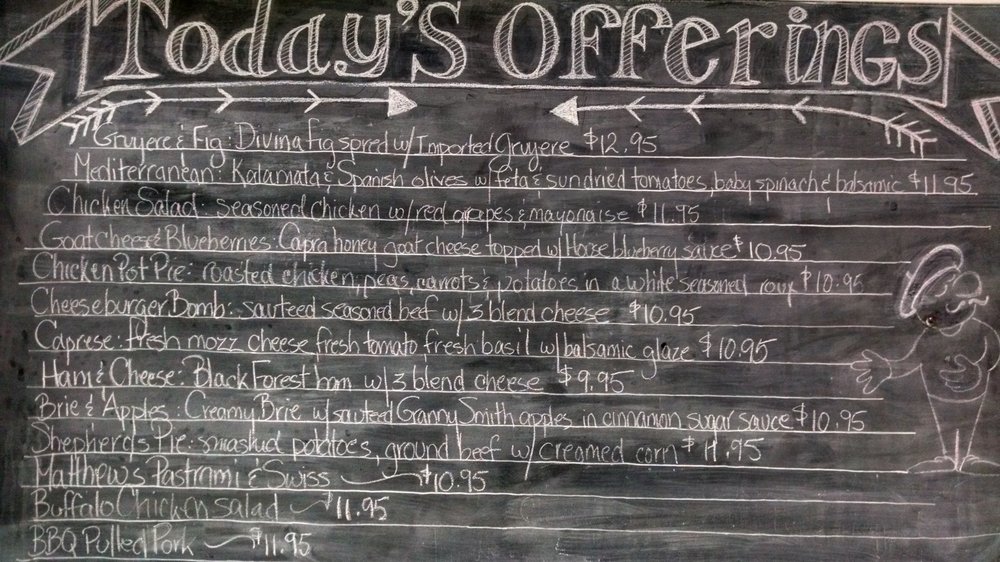 Today's Offerings
Gruyere & Fig: Divina fig spred w/Imported Gruyere $12.95
Mediterranean: Kalamata & Spanish olives w/feta & sundried tomatoes, baby spinach & balsamic $11.95
Chicken Salad: seasoned chicken w/red grapes & mayonaise $11.95
Goat cheese & Blueberries: Capra honey goat cheese topped w/House blueberry sauce $10.95
Chicken Pot Pie: roasted chicken, peas, carrots & potatoes in a white seasoned roux $10.95
Cheeseburger Bomb: sauteed seasoned beef w/3 blend cheese $10.95
Caprese: fresh mozz cheese fresh tomato fresh basil w/balsamic glaze $10.95
Ham & Cheese: Black Forest ham w/3 blend cheese $9.95
Brie & Apples: Creamy Brie w/sauteed Granny Smith apples in cinnamon sugar sauce $10.95
Shepherd's Pie: smashed potatoes, ground beef w/creamed corn $11.95
Matthew's Pastrami & Swiss $10.95
Buffalo Chicken salad $11.95
BBQ Pulled Pork $11.95